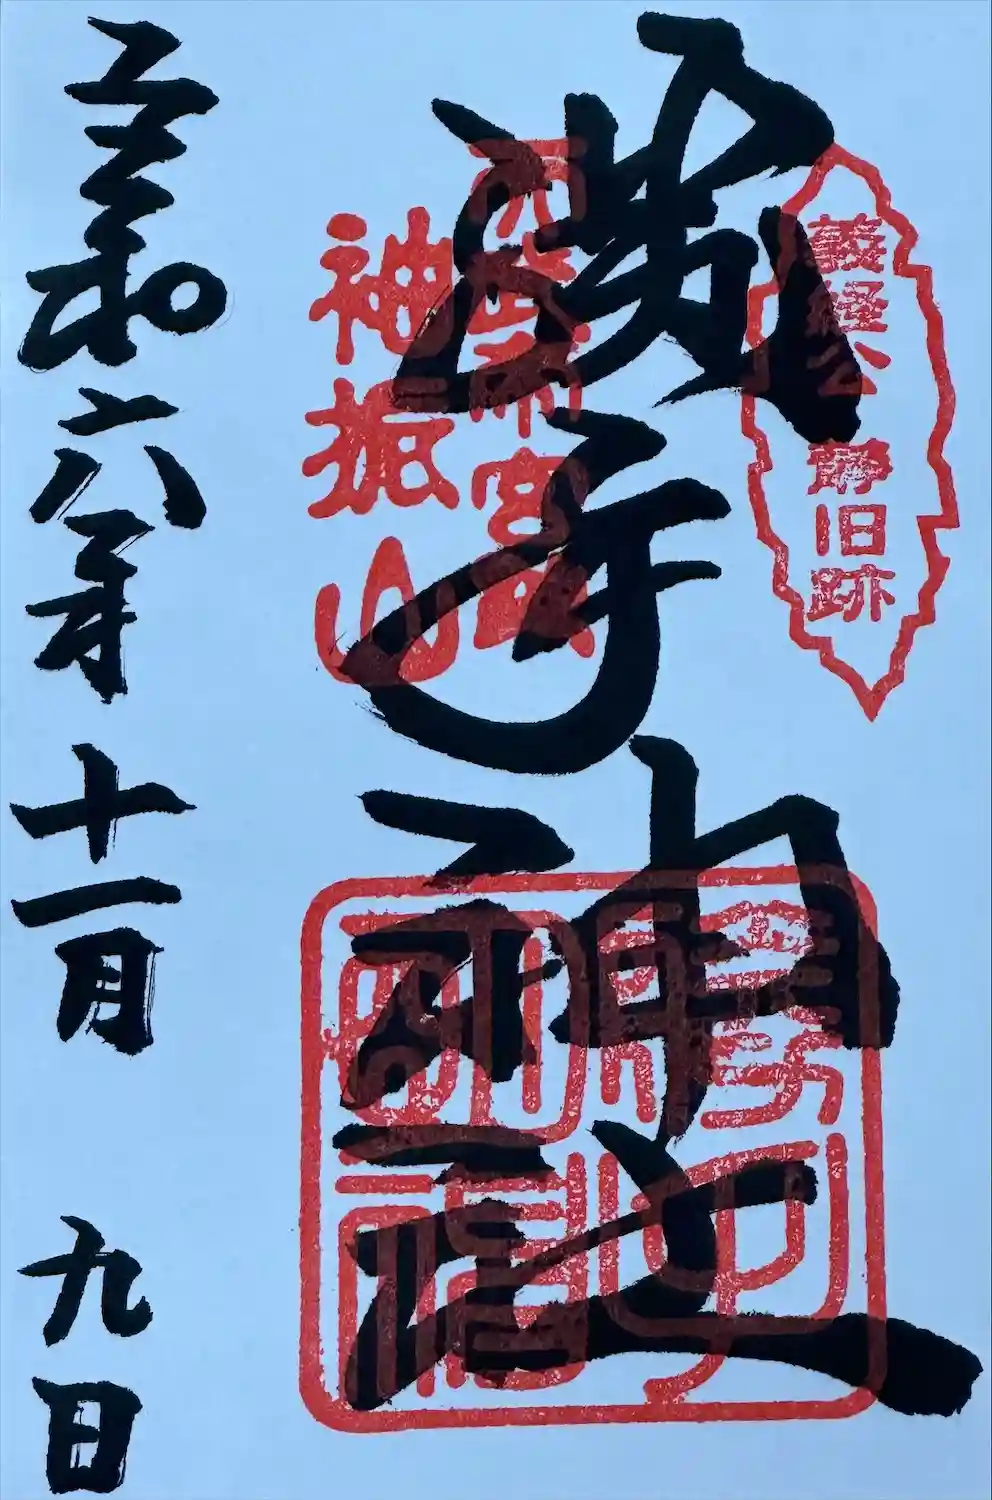 義経公 静旧跡
勝手神社
袖振山
令和六年十一月九日